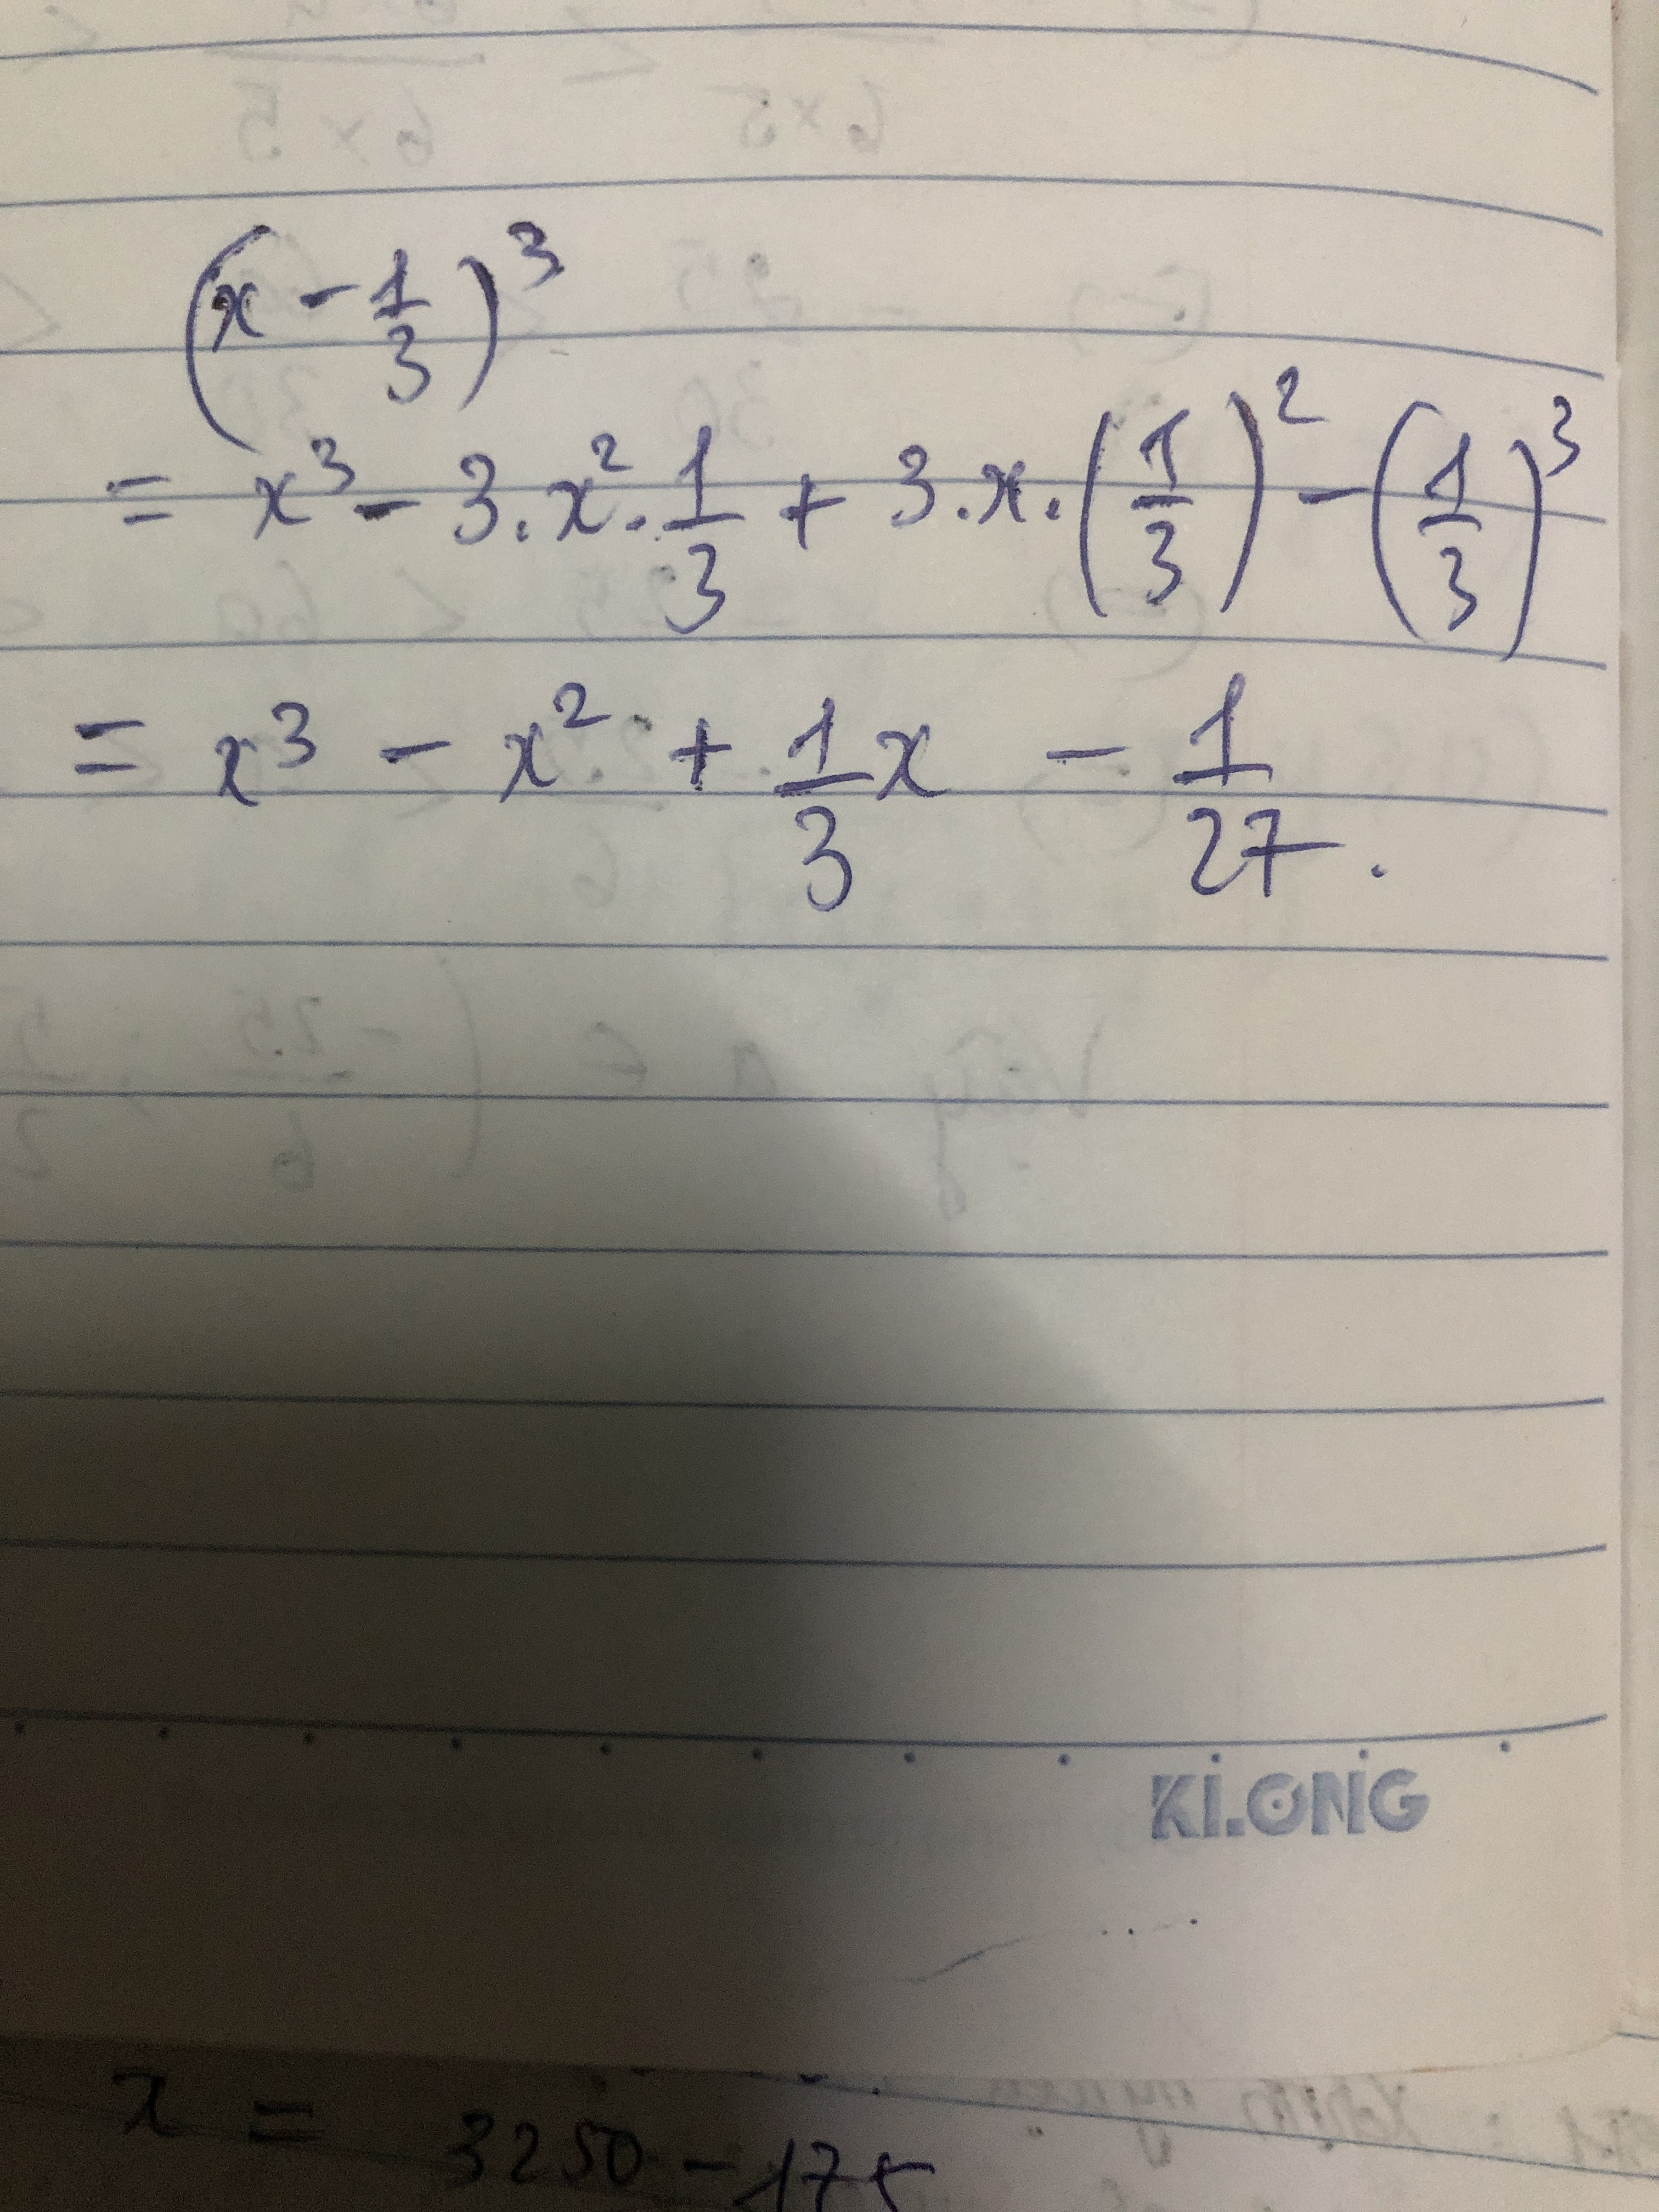 (x - 1/3)³
= x³ - 3.x².1/3 + 3.x.(1/3)² - (1/3)³
= x³ - x² + 1/3 x - 1/27.
KLONG
x = 3250 - 175